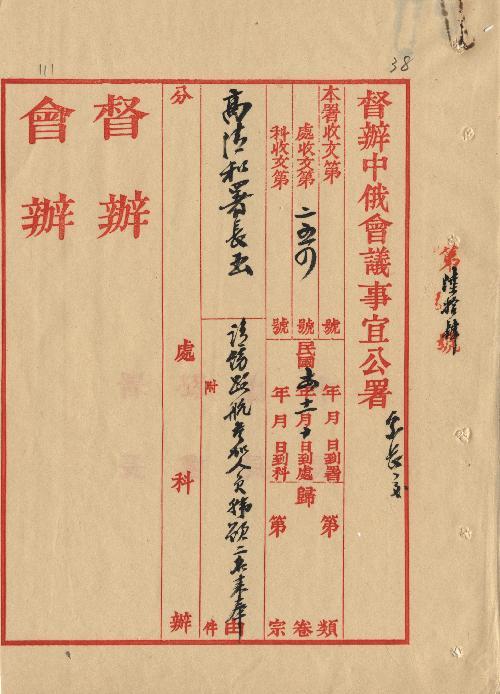 38
111
第陸拾肆號
督辦中俄會議事宜公署
本署收文第 號 年 月 日到署 第 類
處收文第 號 民國 年 月 日到處 歸 卷
科收文第 號 年 月 日到科 第 宗
高清和署長函
請飭路航 人員 由
附 件
分 處 科 辦
督辦
會辦